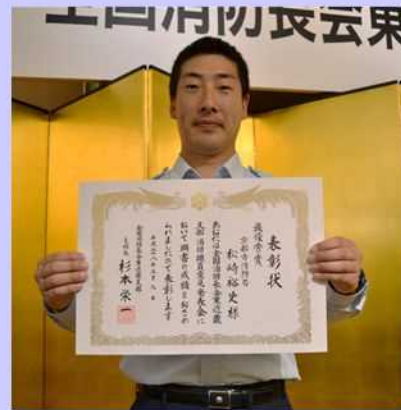 全国消防長会東
表彰状
最優秀賞
京都市消防局
松崎裕史様
あなたは全国消防長会東近畿
支部消防職員意見発表会に
おいて頭書の成績をおさめ
られましたので表彰します
平成二八年五月九日
全国消防長会東近畿支部
支部長 杉本栄一